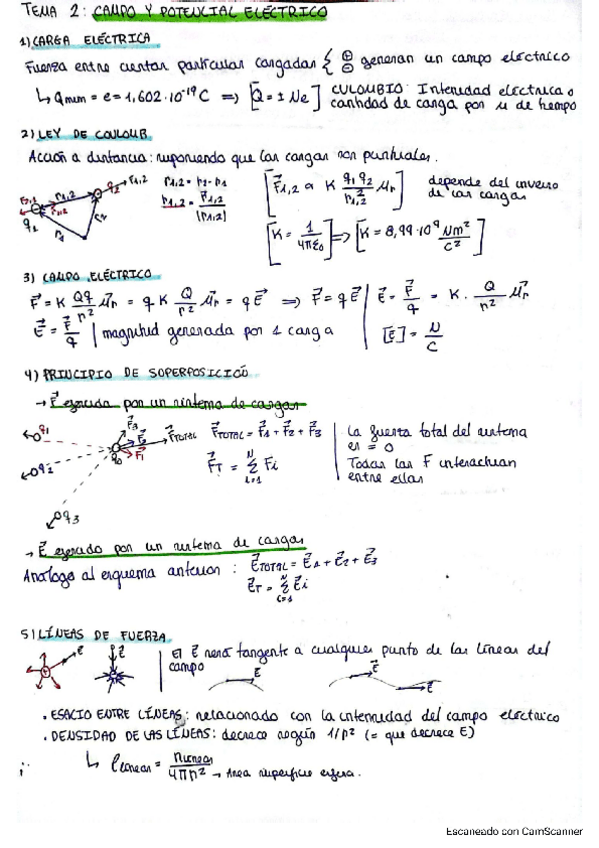 TEMA 2: CAMPO Y POTENCIAL ELÉCTRICO
1) CARGA ELÉCTRICA
Fuerza entre cuentar partícular cargadar { ⊕ ⊖ generan un campo eléctrico
↳ q mım = e = 1,602·10⁻¹⁹ C ⇒ [Q = ± Ne] CULOUBIO: Intenidad eléctrica o
cantidad de carga por u de tiempo
2) LEY DE COULOUB
Acción a distancia: suponiendo que las cargar son puntuales.
F⃗1,2 α K q1 q2 / r²1,2 μ⃗r
depende del inverso
de las cargas
r1,2 = r2 - r1
K = 1/4πε0 ⇒ K = 8,99·10⁹ Nm²/C²
3) CAMPO ELÉCTRICO
F⃗ = K Qq/r² μ⃗r = q K Q/r² μ⃗r = q E⃗ ⇒ F⃗ = q E⃗ | E⃗ = F⃗/q = K · Q/r² μ⃗r
E⃗ = F⃗/q | magnitud generada por 1 carga [E] = N/C
4) PRINCIPIO DE SUPERPOSICIÓ
→ F⃗ ejercida por un sistema de cargas
q1 q2 q3 q0 F⃗1 F⃗2 F⃗3 F⃗TOTAL
F⃗TOTAL = F⃗1 + F⃗2 + F⃗3
F⃗T = Σ Fi
La fuerza total del sistema
es = 0
Todas las F interactuan
entre ellas
→ E⃗ ejercido por un sistema de cargas
Analogo al esquema anterior: E⃗TOTAL = E⃗1 + E⃗2 + E⃗3
E⃗T = Σ E⃗i
5) LÍNEAS DE FUERZA
El E⃗ será tangente a cualquier punto de las líneas del
campo
· ESACIO ENTRE LÍNEAS: relacionado con la intenidad del campo eléctrico
· DENSIDAD DE LAS LÍNEAS: decrece según 1/r² (= que decrece E)
↳ ρlíneas = nlíneas / 4πr² → Área superficie esfera.
Escaneado con CamScanner